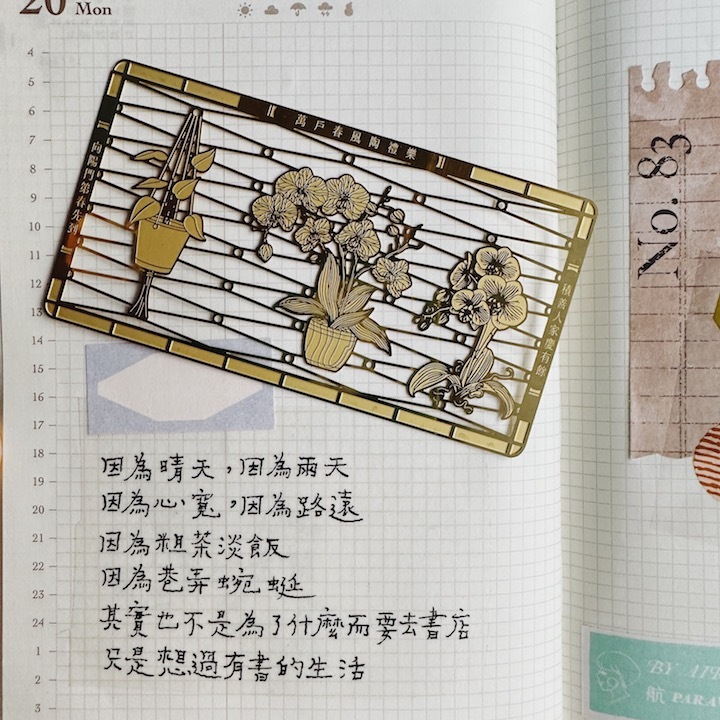 20 Mon
4
5
6
7
8
9
10
11
12
13
14
15
16
17
18
19
20
21
22
23
24
1
2
3
萬戶春風陶禮樂
向陽門第春先到
積善人家慶有餘
因為晴天，因為雨天
因為心寬，因為路遠
因為粗茶淡飯
因為巷弄蜿蜒
其實也不是為了什麼而要去書店
只是想過有書的生活
No. 83
BY
航 PARA